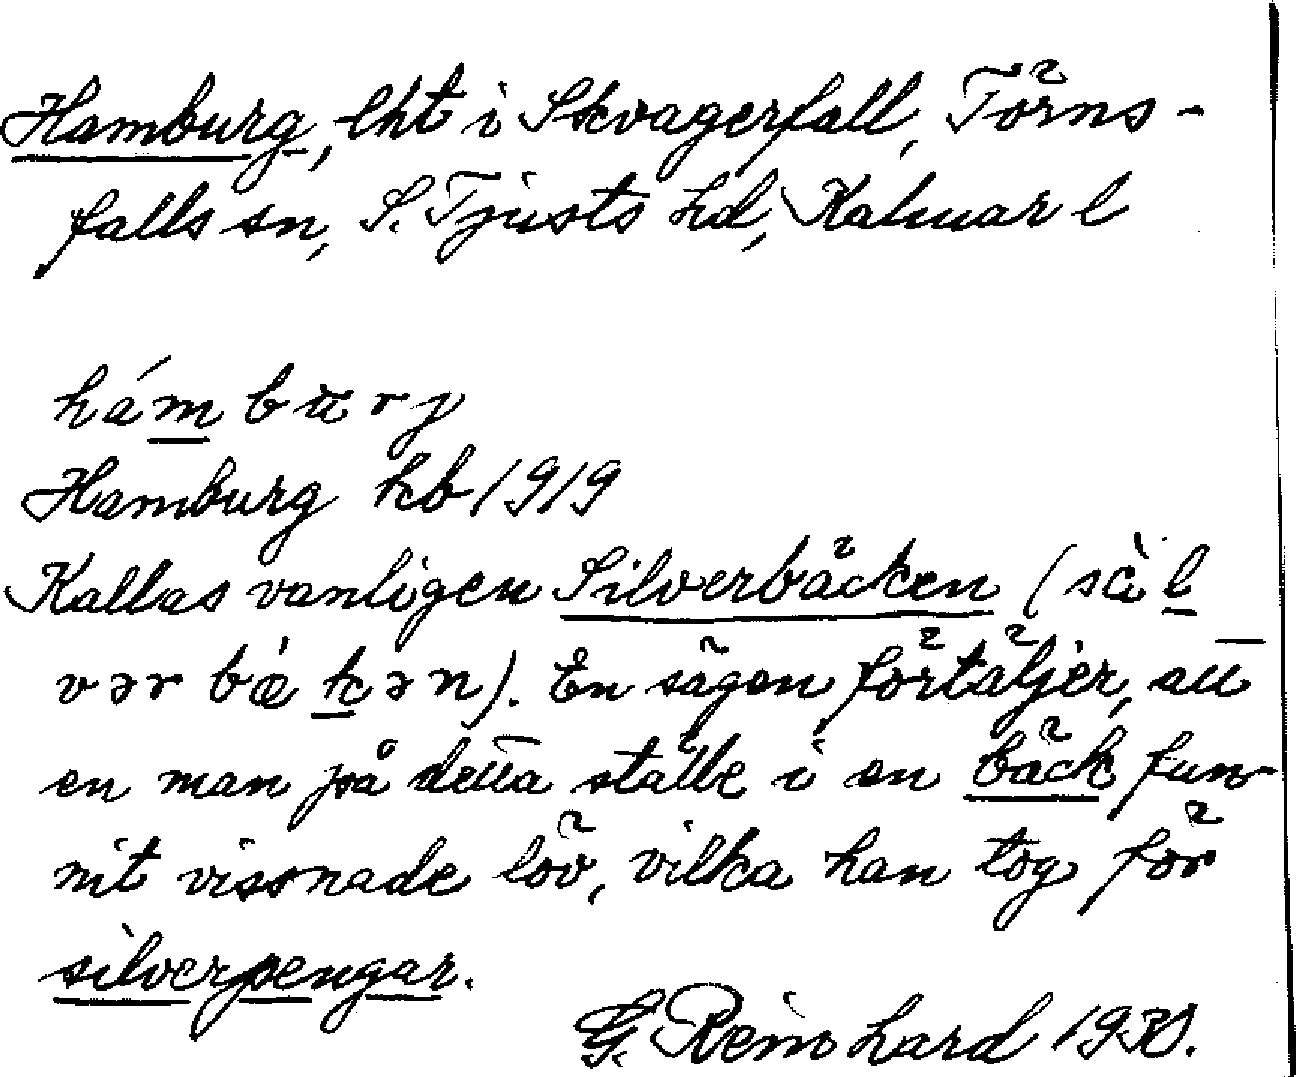 Hamburg, lht i Skvagerfall, Törns-
falls sn, S. Tjusts hd, Kalmar l
hámburj
Hamburg hb 1919
Kallas vanligen Silverbäcken (sìl
vər bǽkən). En sägen förtäljer, att
en man på detta ställe i en bäck fun-
nit vissnade löv, vilka han tog för
silverpengar.
G. Reinhard 1930.